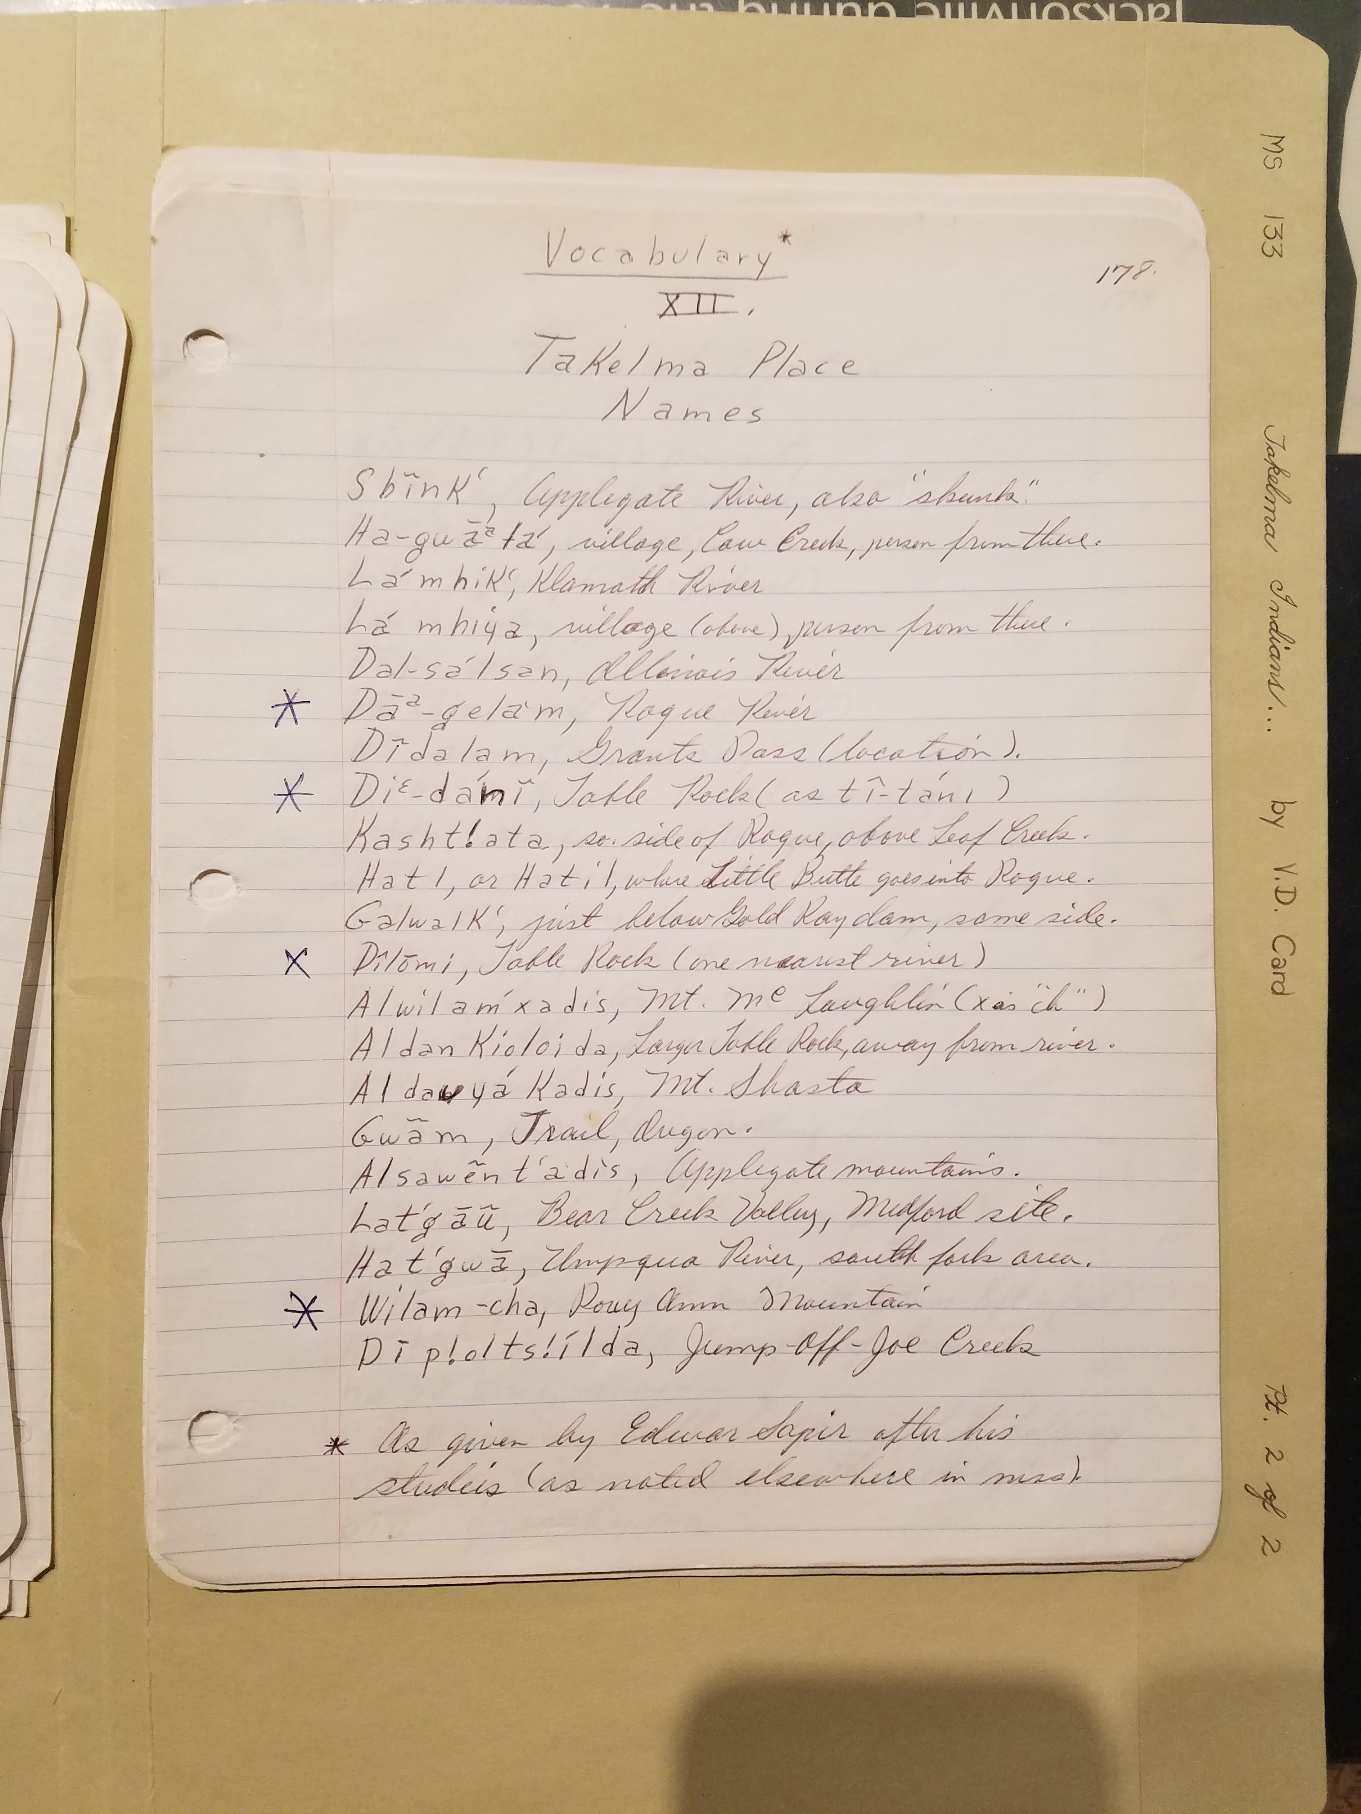 Jacksonville during the
Vocabulary*
178.
XII.
Takelma Place
Names
Sbĩnk', Applegate River, also "skunk".
Ha-gwāᵃlá, village, Cow Creek, person from there.
Lá mhik', Klamath River
Lá mhiya, village (above), person from there.
Dal-sálsan, Illinois River
* Dāᵃ-gelám, Rogue River
Dīdalam, Grants Pass (location).
* Diᵋ-dánĩ, Table Rock (as tî-tánı)
Kasht!ata, so. side of Rogue, above Leaf Creek.
Hat!, or Hatil, where Little Butte goes into Rogue.
Galwalk', just below Gold Ray dam, same side.
X Dîlōmi, Table Rock (one nearest river)
Alwilámxadis, Mt. Mc Laughlin (x as "ch")
Aldan Kioloida, Larger Table Rock, away from river.
Aldauyá Kadis, Mt. Shasta
Gwãm, Trail, Oregon.
Alsawẽnt'adis, Applegate mountains.
Lat'gāũ, Bear Creek Valley, Medford site.
Hat'gwā, Umpqua River, south fork area.
* Wilam-cha, Roxy Ann Mountain
Dī p!olts!ílda, Jump-Off-Joe Creek
* As given by Edwar Sapir after his
studeis (as noted elsewhere in mss).
MS 133 Takelma Indians... by V.D. Card Pt. 2 of 2